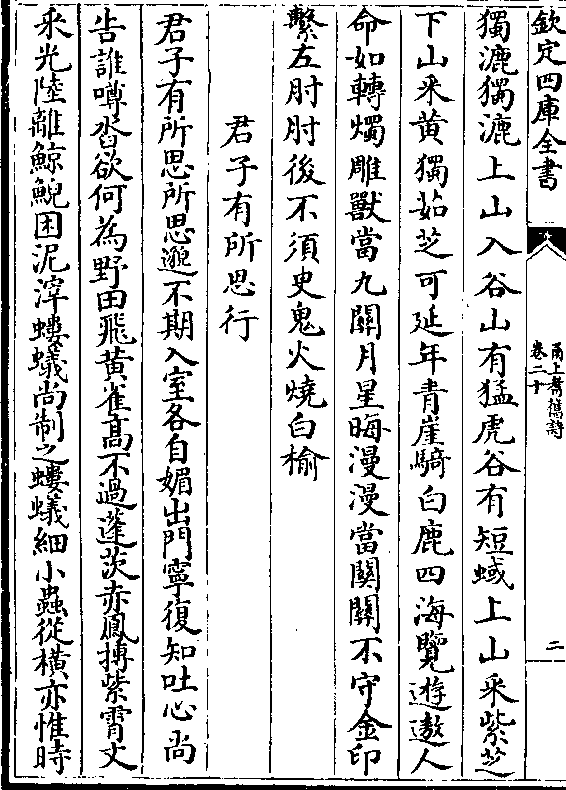 欽定四庫全書
甬上耆舊詩
卷二十
二
獨漉獨漉上山入谷山有猛虎谷有短蜮上山采紫芝
下山采黄獨茹芝可延年青崖騎白鹿四海覽遊遨人
命如轉燭雕獸當九關月星晦漫漫當關關不守金印
繫左肘肘後不須史鬼火燒白榆
君子有所思行
君子有所思所思邈不期入室各自媚出門寧復知吐心尚
告誰噂沓欲何為野田飛黄雀高不過蓬茨赤鳳摶紫霄文
采光陸離鯨鯢困泥滓螻蟻尚制之螻蟻細小蟲從橫亦惟時